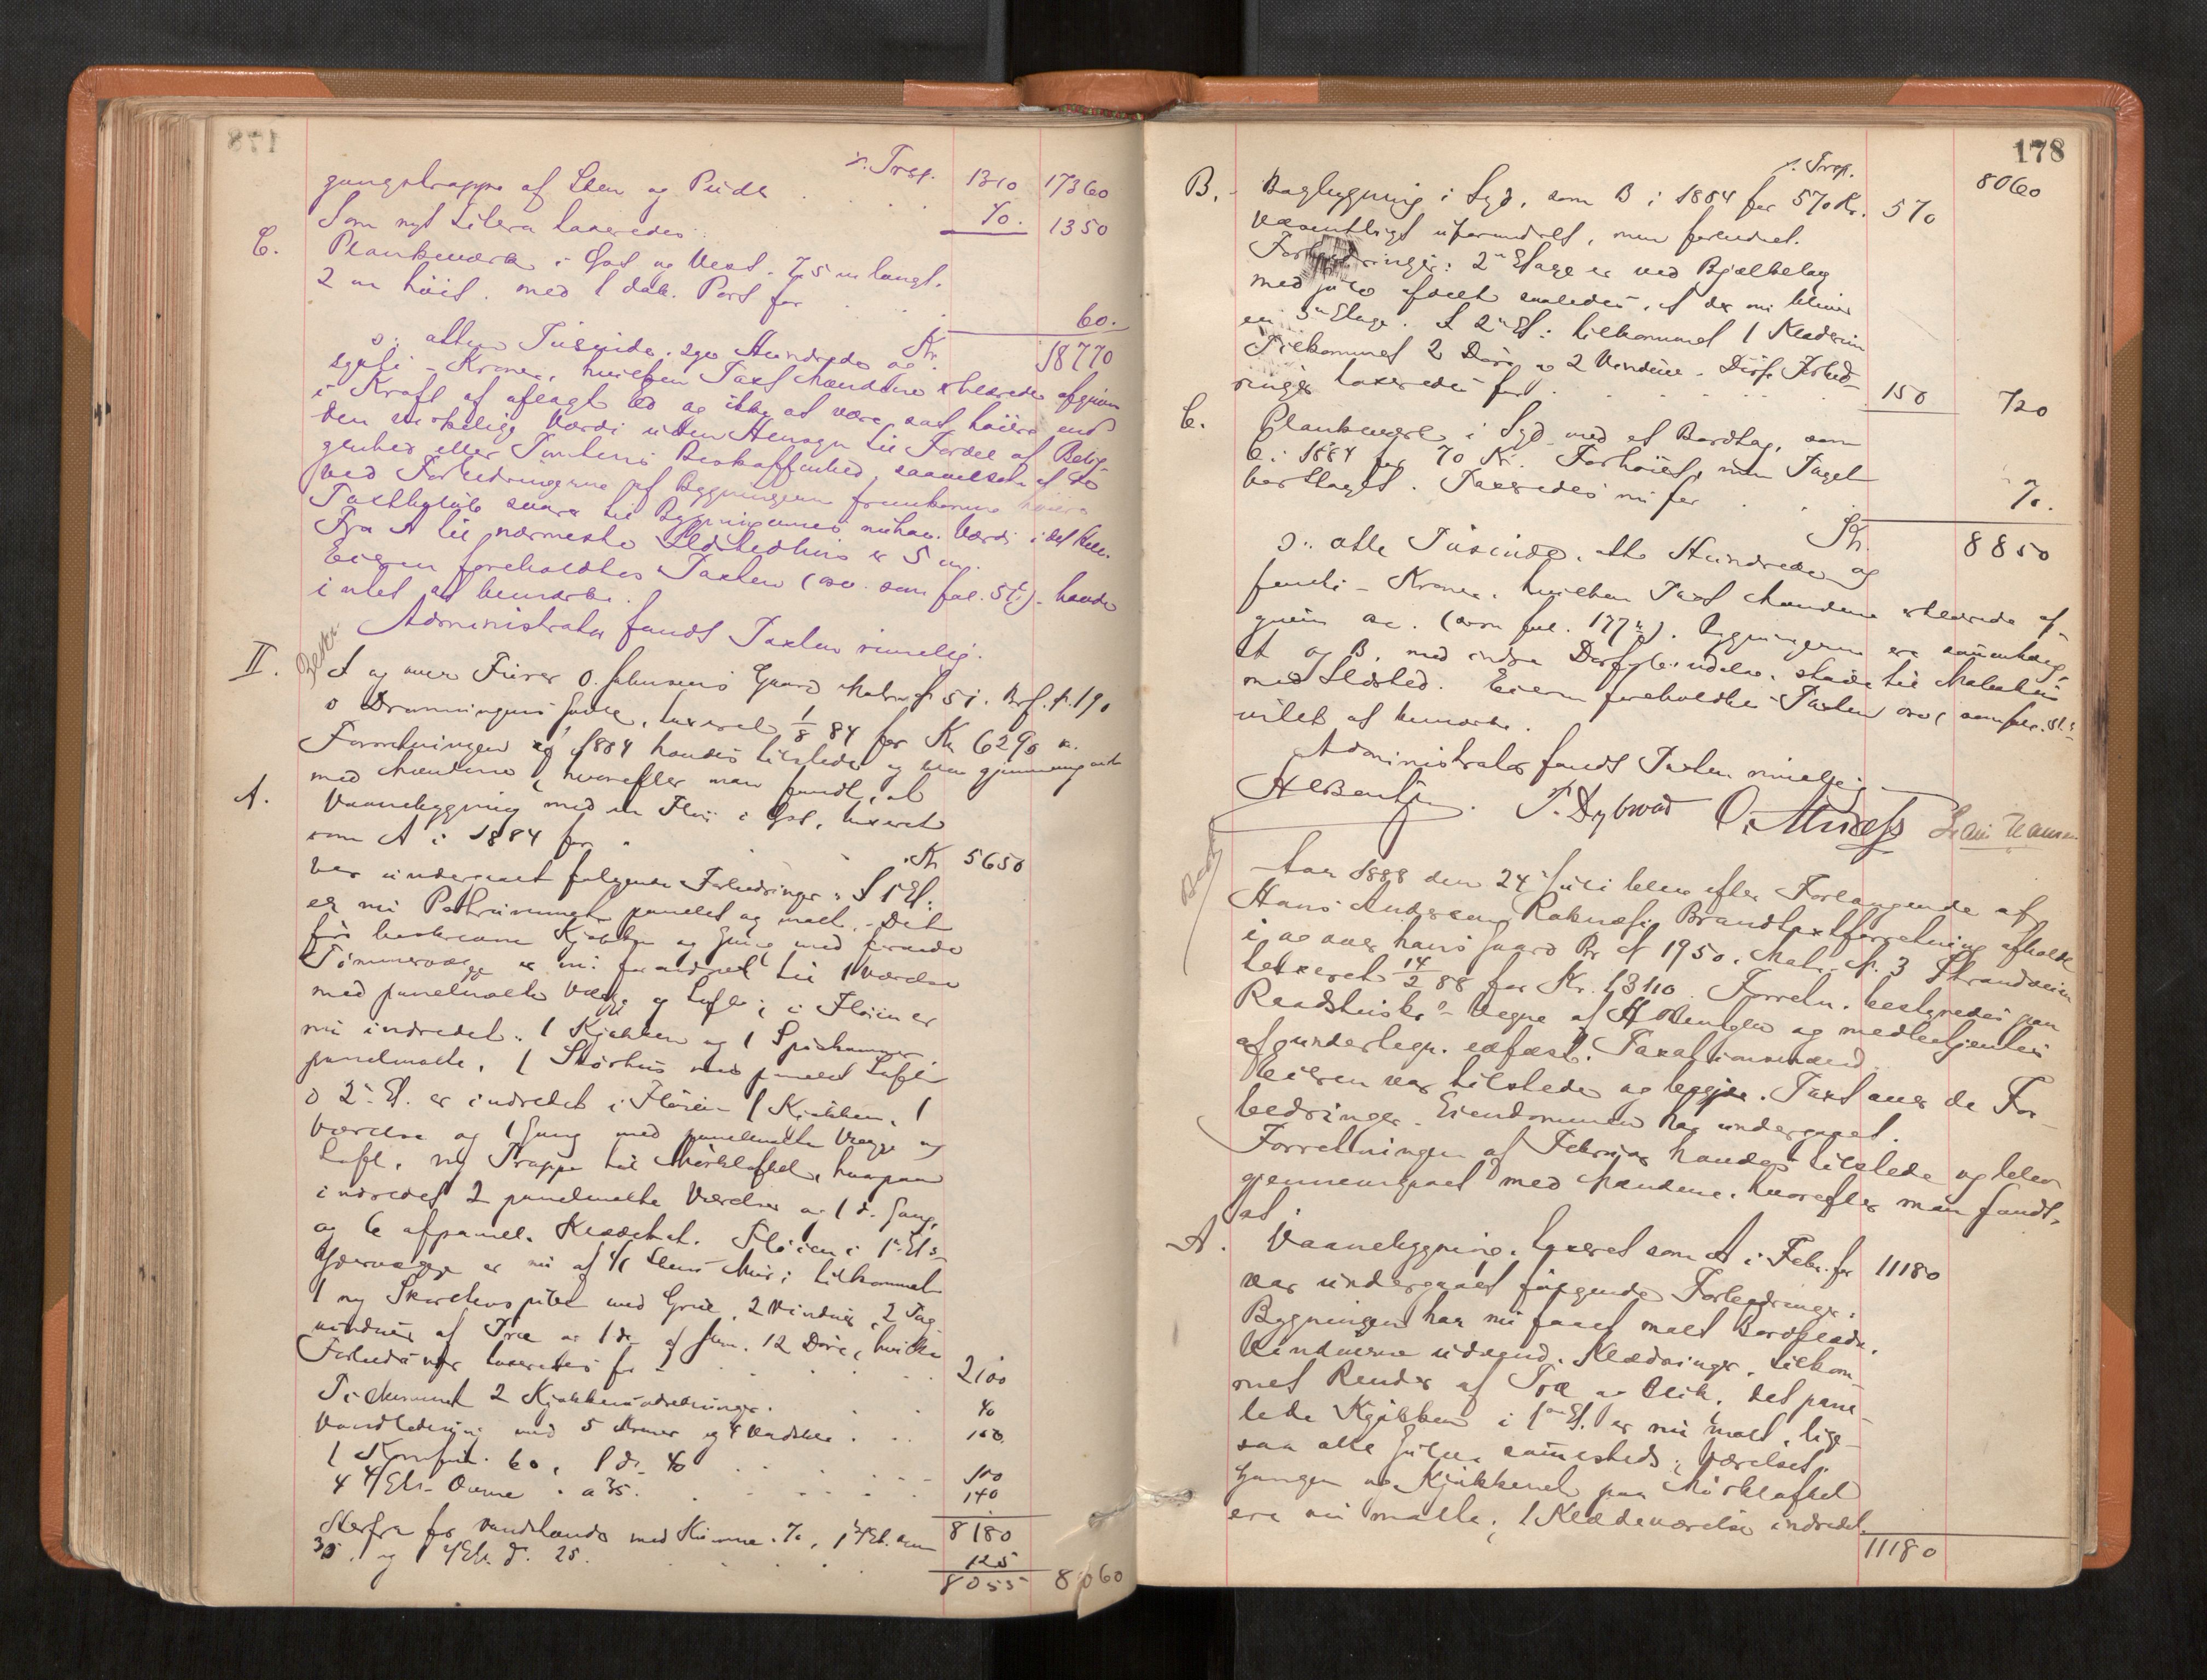 178
%. Trsp. 1310 17360
gangstrappe af Sten og Puds
Som nyt Litera taxeredes 40. 1350
C. Plankeværk i Øst og Vest. 7,5 m langt.
2 m høit. med 1 dob. Port for 60.
Kr. 18770
o: atten Tusinde, syv Hundrede og
sytti - Kroner, hvilken Taxt Mændene erklærede afgiven
i Kraft af aflagt Ed og ikke at være sat høiere end
den virkelige Værdi uden Hensyn til Fordel af Belig-
genhed eller Tomtens Beskaffenhed, saavelsom at de
ved Forbedringerne af Bygningerne fremkomne høiere
Taxtbeløb svare til Bygningernes nuhav. Værdi i det Hele.
Fra A til nærmeste Ildstedhus er 5 m.
Eieren foreholdtes Taxten (osv. som fol. 51), havde
intet at bemærke.
Administrator fandt Taxten rimelig.
II. Beskr.
I og over Fiirer O. Johnsens Gaard Matr. № 51. Brf. № 190
o Dronningens Gade, taxeret 1/8 84 for Kr 6290.
Forretningen af 1884 havdes tilstede og blev gjennemgaaet
med Mændene, hvorefter man fandt, at
A. Vaanebygning med en Fløi i Øst, taxeret
som A i 1884 for Kr 5650
var undergaaet følgende Forbedringer: I 1 Et.
er nu Pothrummet panelet og malt. Det
før beskrevne Kjøkken og Gang med forende
Tømmervægge er nu forandret til 1 Værelse
med panelmalte Vægge og Loft; i Fløien er
nu indredet: 1 Kjøkken og 1 Spiskammer
panelmalte, 1 Skorhus med panelet Loft
I 2. Et. er indredet i Fløien 1 Kjøkken, 1
Værelse og 1 Gang med panelmalte Vægge og
Loft, ny Trappe til Mørkloftet, hvorpaa
indredet 2 panelmalte Værelser og 1 d. Gang,
og 6 afpanel. Klædekot. Fløien i 1. Ets
Ydervægge er nu af 1/1 Stens Mur; tilkommet
1 ny Skorstenspibe med Grue, 2 Vinduer, 2 Tag-
vinduer af Træ og 1 do. af Jern. 12 Døre, hvilke
Forbedringer taxeredes for 2100
Tilkommet 2 Kjøkkenindredninger. 40
Vandledning med 5 Kraner og 4 Vadske 150.
1 Komfur. 60, 1 do. 40 100
4 4/Ets Ovne à 35. 140
8180
Herfra for Vandstande med Kumme. 70, 1 4/Et. Ovn
30, og 1 /Ets d. 25. 125
8055 8060
178
%. Trsp. 8060
B. Bagbygning i Syd, som B i 1884 for 570 Kr. 570
væsentligt uforandret, men forbedret.
Forbedringer: 2n Etage er ved Bjælkelag
med afdelt saaledes, at der nu bliver
en 3n Etage. I 2n Et: tilkommet 1 Klæderum
Tilkommet 2 Døre og 2 Vinduer. Disse Forbed-
ringer taxeredes for 150 720
C. Plankeværk i Syd med et Bordtag, som
C i 1884 for 70 Kr. Forhøiet, men Taget
borttaget. Taxeredes nu for 70.
Kr. 8850
o: otte Tusinde, otte Hundrede og
femti - Kroner, hvilken Taxt Mændene erklærede af-
given osv. (som fol. 177). Bygningerne ere sammenbyg.
A og B. med indre Dørforbindelse, støde til Nabohus
med Ildsted. Eieren foreholdtes Taxten osv. som fol. 51
intet at bemærke.
Administrator fandt Taxten rimelig.
A Bentzen. T. Dybwad O. Lani Hansen
Beskr.
Aar 1888 den 24 Juli blev efter Forlangende af
Hans Andersen Raknæs Brandtaxtforretning afholdt
i og over hans Gaard Br. № 1950. Matr. № 3 Strandveien
taxeret 14/2 88 for Kr. 13110. Forretn. bestyredes paa
Raadstuskr.s Vegne af A Bentzen og medbetjentes
af undertegn. edfæst. Taxationsmænd.
Eieren var tilstede og begjær. Taxt over de For-
bedringer Eiendommen har undergaaet.
Forretningen af Februar havdes tilstede og blev
gjennemgaaet med Mændene, hvorefter man fandt,
at
A. Vaanebygning, taxeret som A i Febr. for 11180
var undergaaet følgende Forbedringer:
Bygningen har nu faaet malt Bordklædn.
Vinduerne udvend. Klædninger, tilkom-
met Render af Træ og Blik, det pane-
lede Kjøkken i 1ste Et. er nu malt, lige-
saa alle Gulve sammesteds; Værelset,
Gangen og Kjøkkenet paa Mørkloftet
ere nu malte; 1 Klædeværelse indredet.
11180